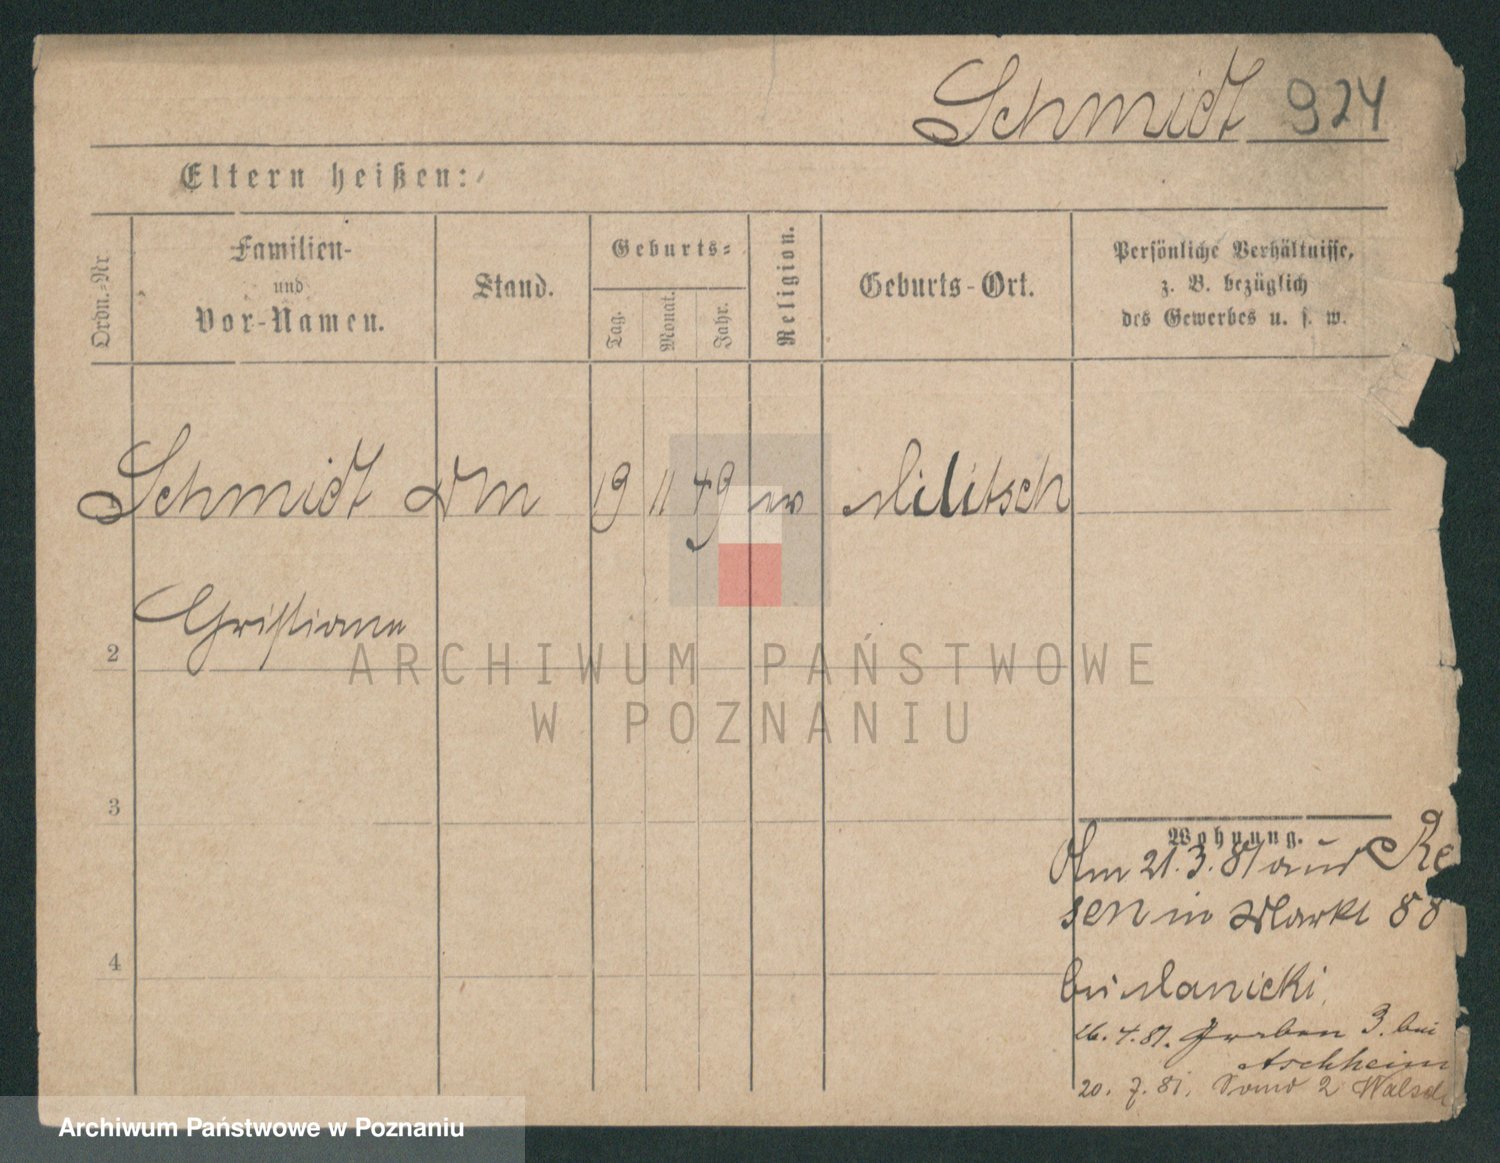 Schmidt 924
Eltern heißen:
Ordn.-Nr
Familien-
und
Vor-Namen.
Stand.
Geburts-
Tag.
Monat.
Jahr.
Religion.
Geburts-Ort.
Persönliche Verhältnisse,
z. B. bezüglich
des Gewerbes u. s. w.
Schmidt 19 11 49 ev Militsch
2
3
4
Wohnung.
21.3.81 aus Re
sen in Markt 88
bei Manicki
26.4.81. Graben 3. bei
Aschheim
20. 7. 81. 2
ARCHIWUM PAŃSTWOWE
W POZNANIU
Archiwum Państwowe w Poznaniu